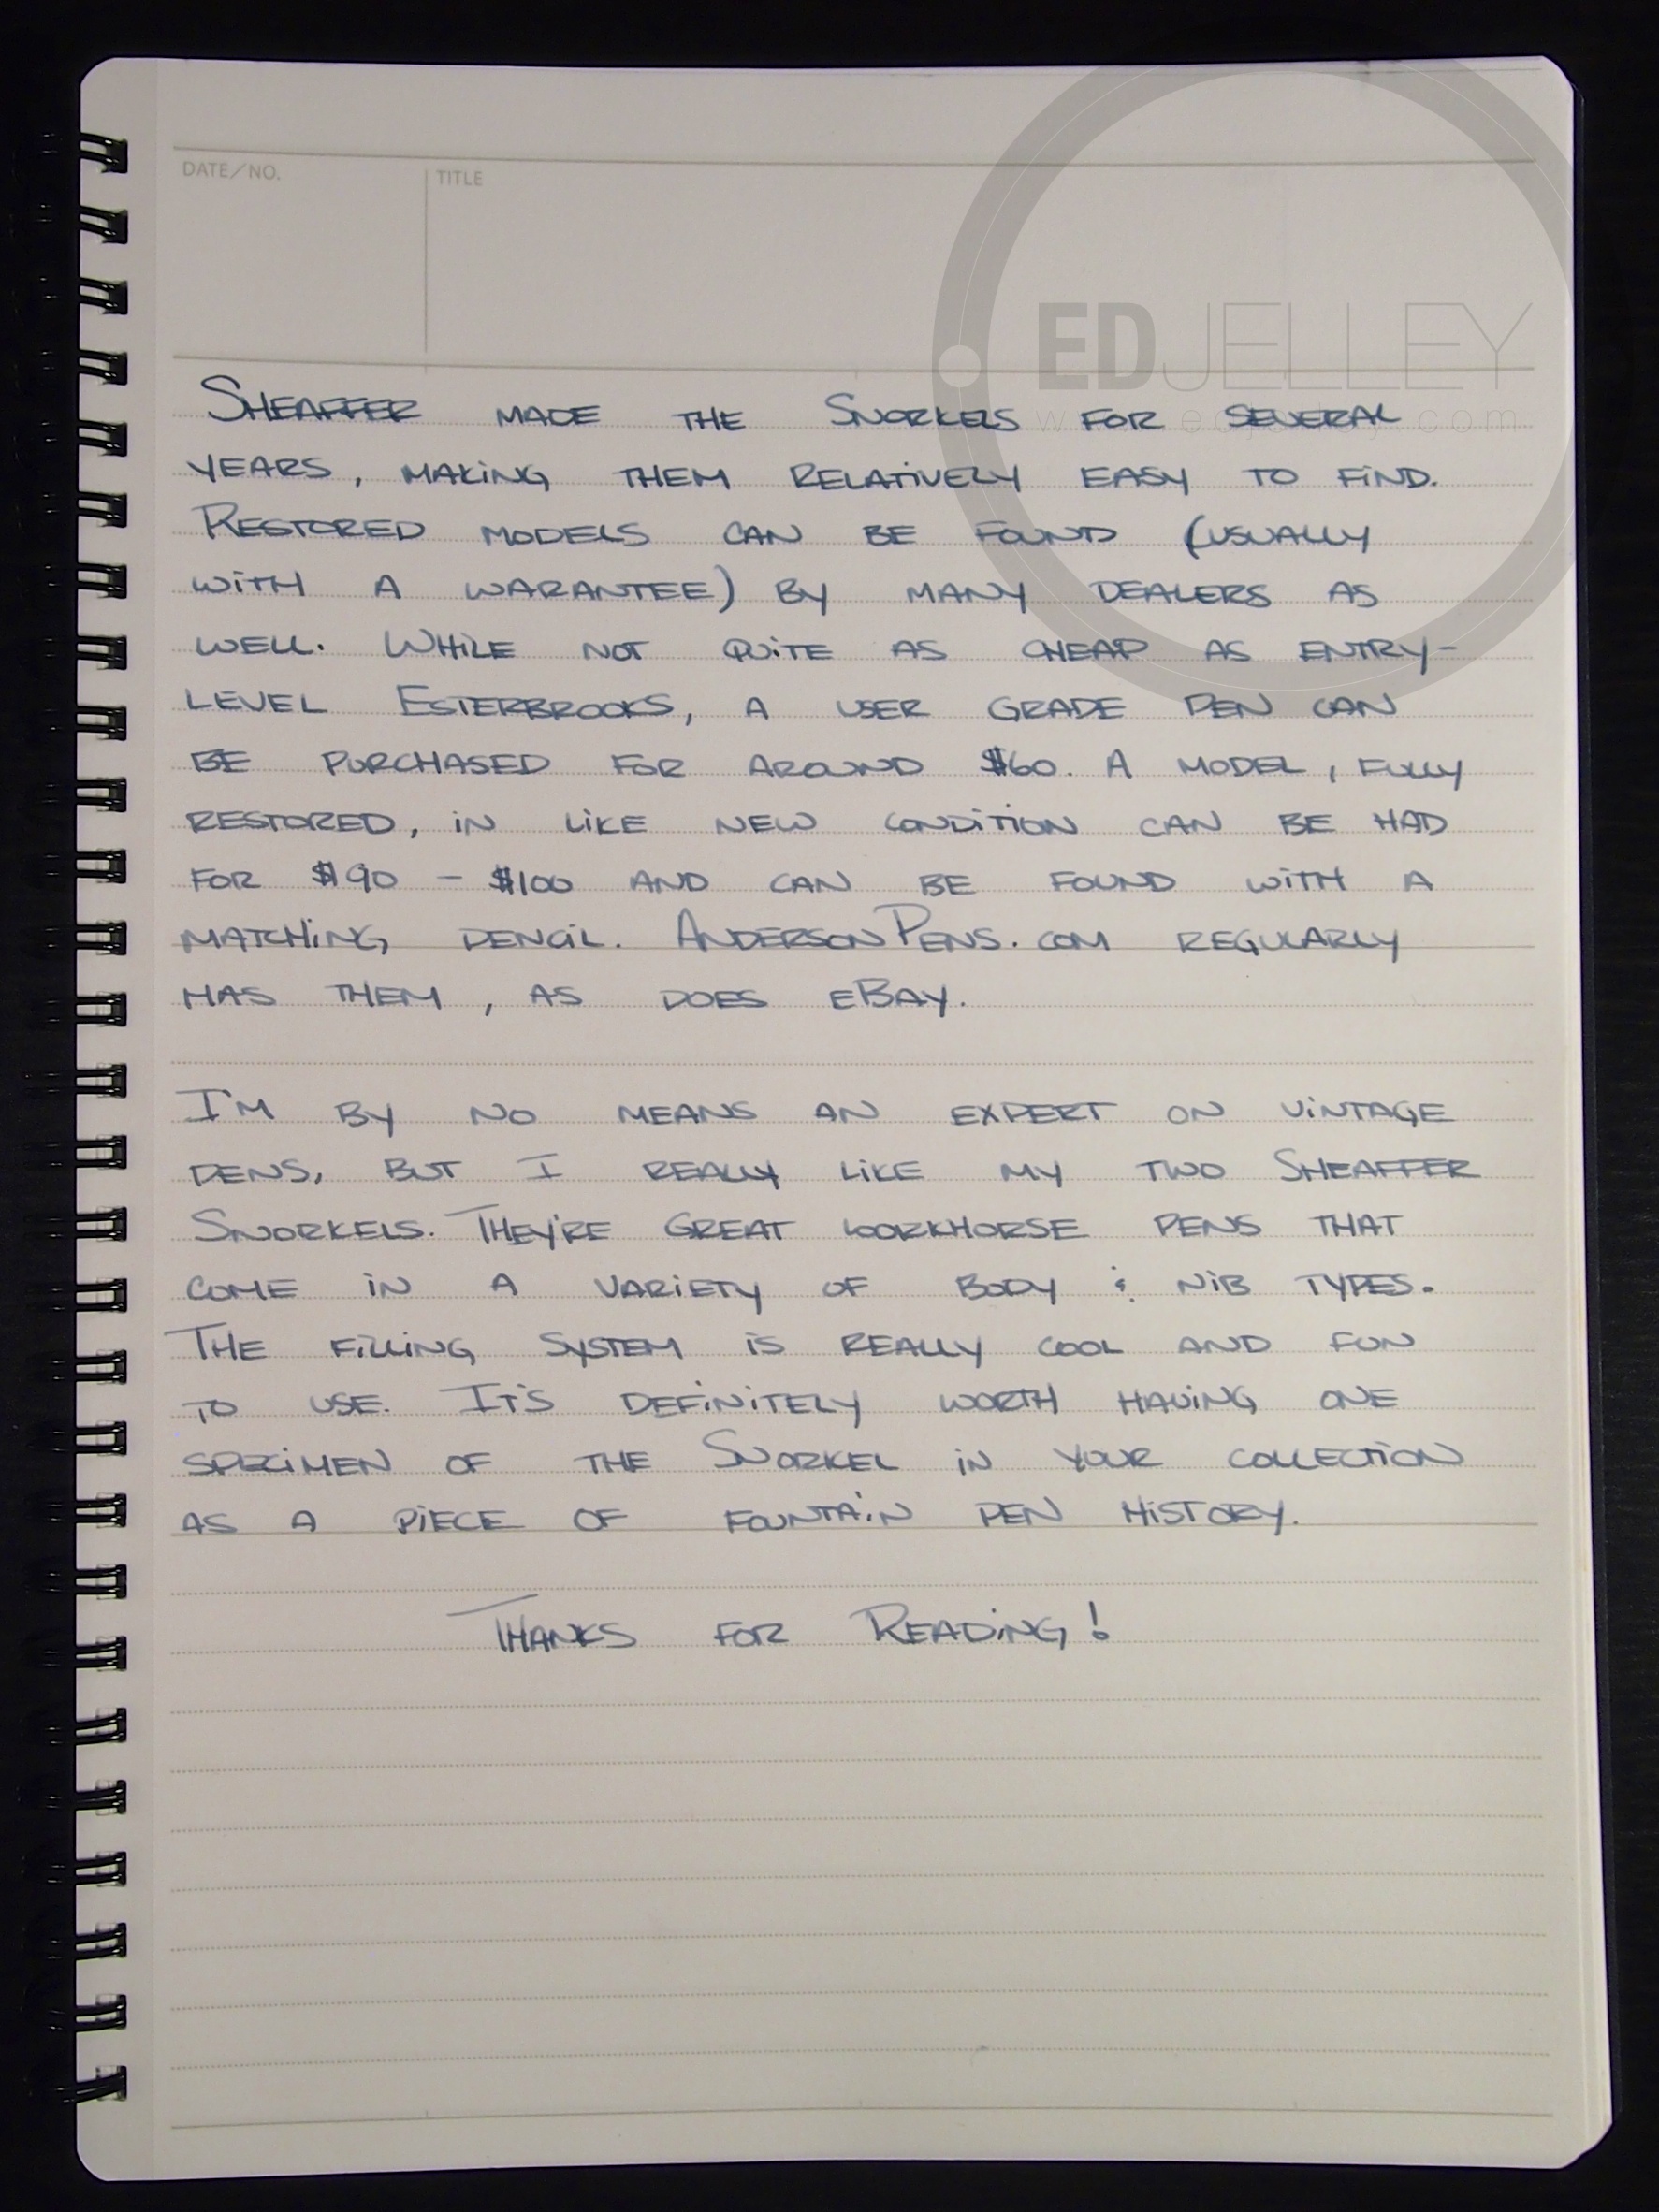 DATE/NO.
TITLE
EDJELLEY
SHEAFFER MADE THE SNORKELS FOR SEVERAL
YEARS, MAKING THEM RELATIVELY EASY TO FIND.
RESTORED MODELS CAN BE FOUND (USUALLY
WITH A WARANTEE) BY MANY DEALERS AS
WELL. WHILE NOT QUITE AS CHEAP AS ENTRY-
LEVEL ESTERBROOKS, A USER GRADE PEN CAN
BE PURCHASED FOR AROUND $60. A MODEL, FULLY
RESTORED, IN LIKE NEW CONDITION CAN BE HAD
FOR $90 - $100 AND CAN BE FOUND WITH A
MATCHING PENCIL. ANDERSONPENS.COM REGULARLY
HAS THEM, AS DOES EBAY.
I'M BY NO MEANS AN EXPERT ON VINTAGE
PENS, BUT I REALLY LIKE MY TWO SHEAFFER
SNORKELS. THEY'RE GREAT WORKHORSE PENS THAT
COME IN A VARIETY OF BODY & NIB TYPES.
THE FILLING SYSTEM IS REALLY COOL AND FUN
TO USE. IT'S DEFINITELY WORTH HAVING ONE
SPECIMEN OF THE SNORKEL IN YOUR COLLECTION
AS A PIECE OF FOUNTAIN PEN HISTORY.
THANKS FOR READING!